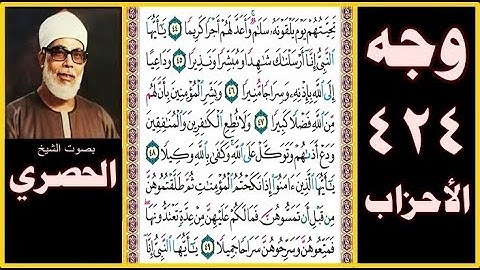 وجه
٤٢٤
الأحزاب
تَحِيَّتُهُمْ يَوْمَ يَلْقَوْنَهُۥ سَلَٰمٌ ۚ وَأَعَدَّ لَهُمْ أَجْرًا كَرِيمًا ٤٤ يَٰٓأَيُّهَا
ٱلنَّبِىُّ إِنَّآ أَرْسَلْنَٰكَ شَٰهِدًا وَمُبَشِّرًا وَنَذِيرًا ٤٥ وَدَاعِيًا
إِلَى ٱللَّهِ بِإِذْنِهِۦ وَسِرَاجًا مُّنِيرًا ٤٦ وَبَشِّرِ ٱلْمُؤْمِنِينَ بِأَنَّ لَهُم
مِّنَ ٱللَّهِ فَضْلًا كَبِيرًا ٤٧ وَلَا تُطِعِ ٱلْكَٰفِرِينَ وَٱلْمُنَٰفِقِينَ
وَدَعْ أَذَىٰهُمْ وَتَوَكَّلْ عَلَى ٱللَّهِ ۚ وَكَفَىٰ بِٱللَّهِ وَكِيلًا ٤٨
يَٰٓأَيُّهَا ٱلَّذِينَ ءَامَنُوٓا۟ إِذَا نَكَحْتُمُ ٱلْمُؤْمِنَٰتِ ثُمَّ طَلَّقْتُمُوهُنَّ
مِن قَبْلِ أَن تَمَسُّوهُنَّ فَمَا لَكُمْ عَلَيْهِنَّ مِنْ عِدَّةٍ تَعْتَدُّونَهَا ۖ
فَمَتِّعُوهُنَّ وَسَرِّحُوهُنَّ سَرَاحًا جَمِيلًا ٤٩ يَٰٓأَيُّهَا ٱلنَّبِىُّ إِنَّآ
بصوت الشيخ
الحصري